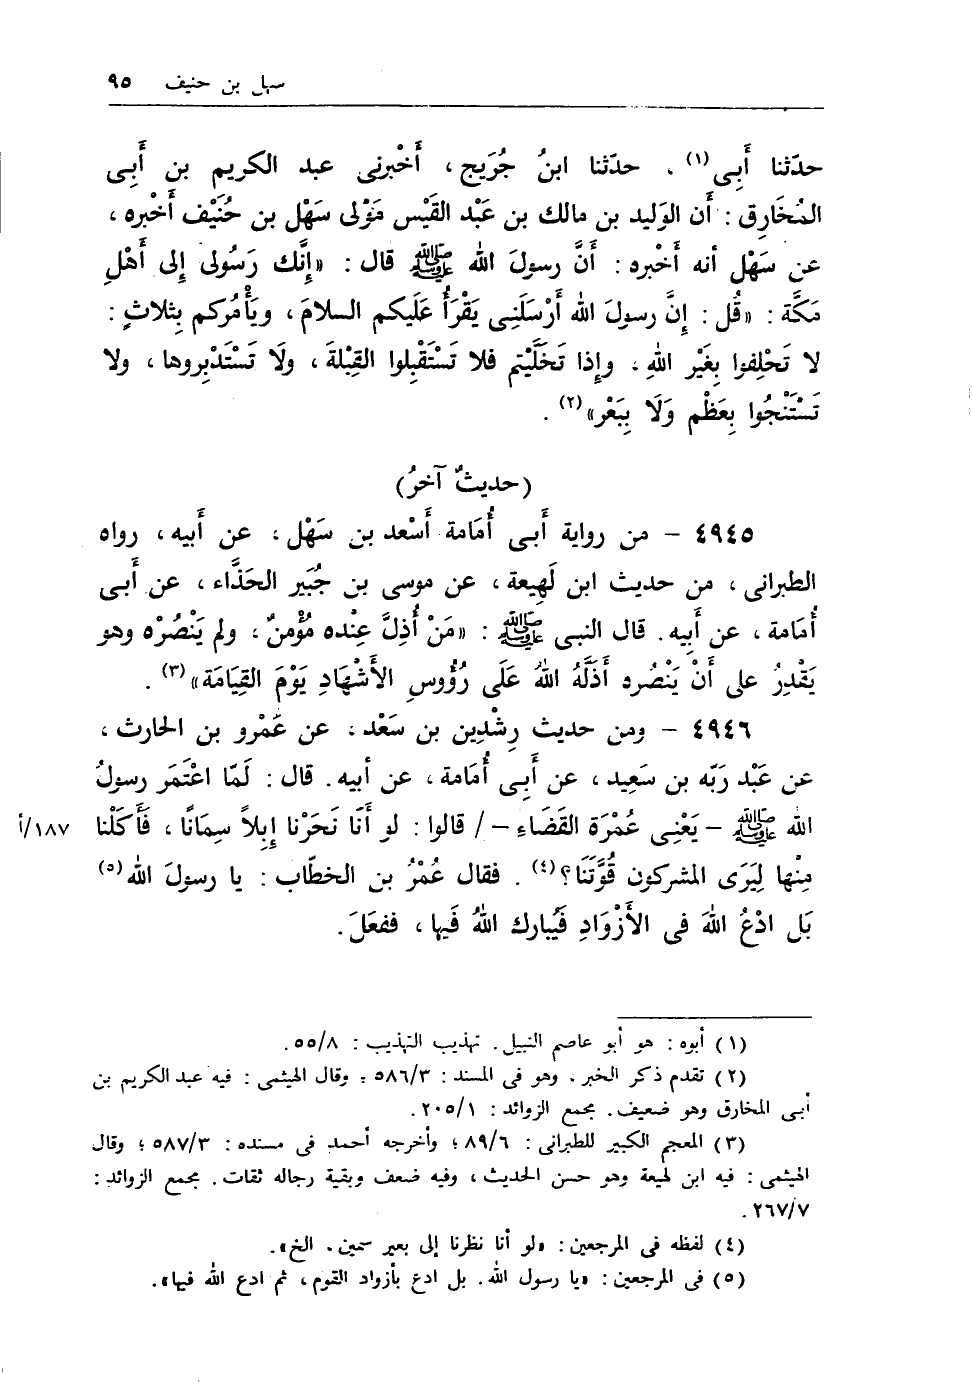 سهل بن حنيف ٩٥
حدّثنا أَبِى(١) . حدّثنا ابنُ جُرَيج ، أَخْبرنى عبد الكريم بن أَبِى
المُخَارِق : أَن الوَليد بن مالك بن عَبْد القَيْس مَوْلى سَهْل بن حُنَيْف أَخْبره ،
عن سَهْل أنه أَخْبره : أَنَّ رسولَ الله ﷺ قال : «إِنَّك رَسُولى إلى أَهْلِ
مَكَّة : «قُل : إِنَّ رسولَ الله أَرْسَلَنِى يَقْرَأُ عَلَيكم السلامَ ، ويَأْمُركم بِثلاثٍ :
لا تَحْلِفوا بِغَيْر اللهِ ، وإذا تَخَلَّيْتم فلا تَسْتَقْبِلوا القِبْلةَ ، ولَا تَسْتَدْبِروها ، ولا
تَسْتَنْجُوا بِعَظْم وَلَا بِبَعْر»(٢) .
(حديثٌ آخرُ)
٤٩٤٥ – من رواية أَبى أُمَامة أَسْعد بن سَهْل ، عن أَبيه ، رواه
الطبرانى ، من حديث ابن لَهِيعة ، عن موسى بن جُبَير الحَذَّاء ، عن أَبى
أُمَامة ، عن أَبِيه. قال النبى ﷺ : «مَنْ أُذِلَّ عِنْده مُؤْمنٌ ، ولم يَنْصُرْه وهو
يَقْدِرُ على أَنْ يَنْصُره أَذَلَّهُ اللهُ عَلَى رُؤُوسِ الأَشْهَادِ يَوْمَ القِيَامَة»(٣) .
٤٩٤٦ – ومن حديث رِشْدِين بن سَعْد ، عن عَمْرو بن الحارث ،
عن عَبْد رَبّه بن سَعِيد ، عن أَبِى أُمَامة ، عن أبيه. قال : لَمّا اعْتَمَر رسولُ
الله ﷺ – يَعْنِى عُمْرَة القَضَاء – / قالوا : لو أَنَّا نَحَرْنا إِبلاً سِمَانًا ، فَأَكَلْنا ١٨٧/أ
مِنْها لِيَرَى المشركون قُوَّتَنَا؟(٤) . فقال عُمْرُ بن الخطّاب : يا رسولَ الله(٥)
بَل ادْعُ اللهَ فى الأَزْوَادِ فَيُبارك اللهُ فَيها ، ففعَلَ.
(١) أبوه : هو أبو عاصم النبيل. تهذيب التهذيب : ٥٥/٨.
(٢) تقدم ذكر الخبر . وهو فى المسند : ٥٨٦/٣ ؛ وقال الهيثمى : فيه عبد الكريم بن
أبى المخارق وهو ضعيف. مجمع الزوائد : ٢٠٥/١.
(٣) المعجم الكبير للطبرانى : ٨٩/٦ ؛ وأخرجه أحمد فى مسنده : ٥٨٧/٣ ؛ وقال
الهيثمى : فيه ابن لهيعة وهو حسن الحديث ، وفيه ضعف وبقية رجاله ثقات. مجمع الزوائد :
٢٦٧/٧.
(٤) لفظه فى المرجعين : «لو أنا نظرنا إلى بعير سمين. الخ».
(٥) فى المرجعين : «يا رسول الله. بل ادع بأزواد القوم ، ثم ادع الله فيها».